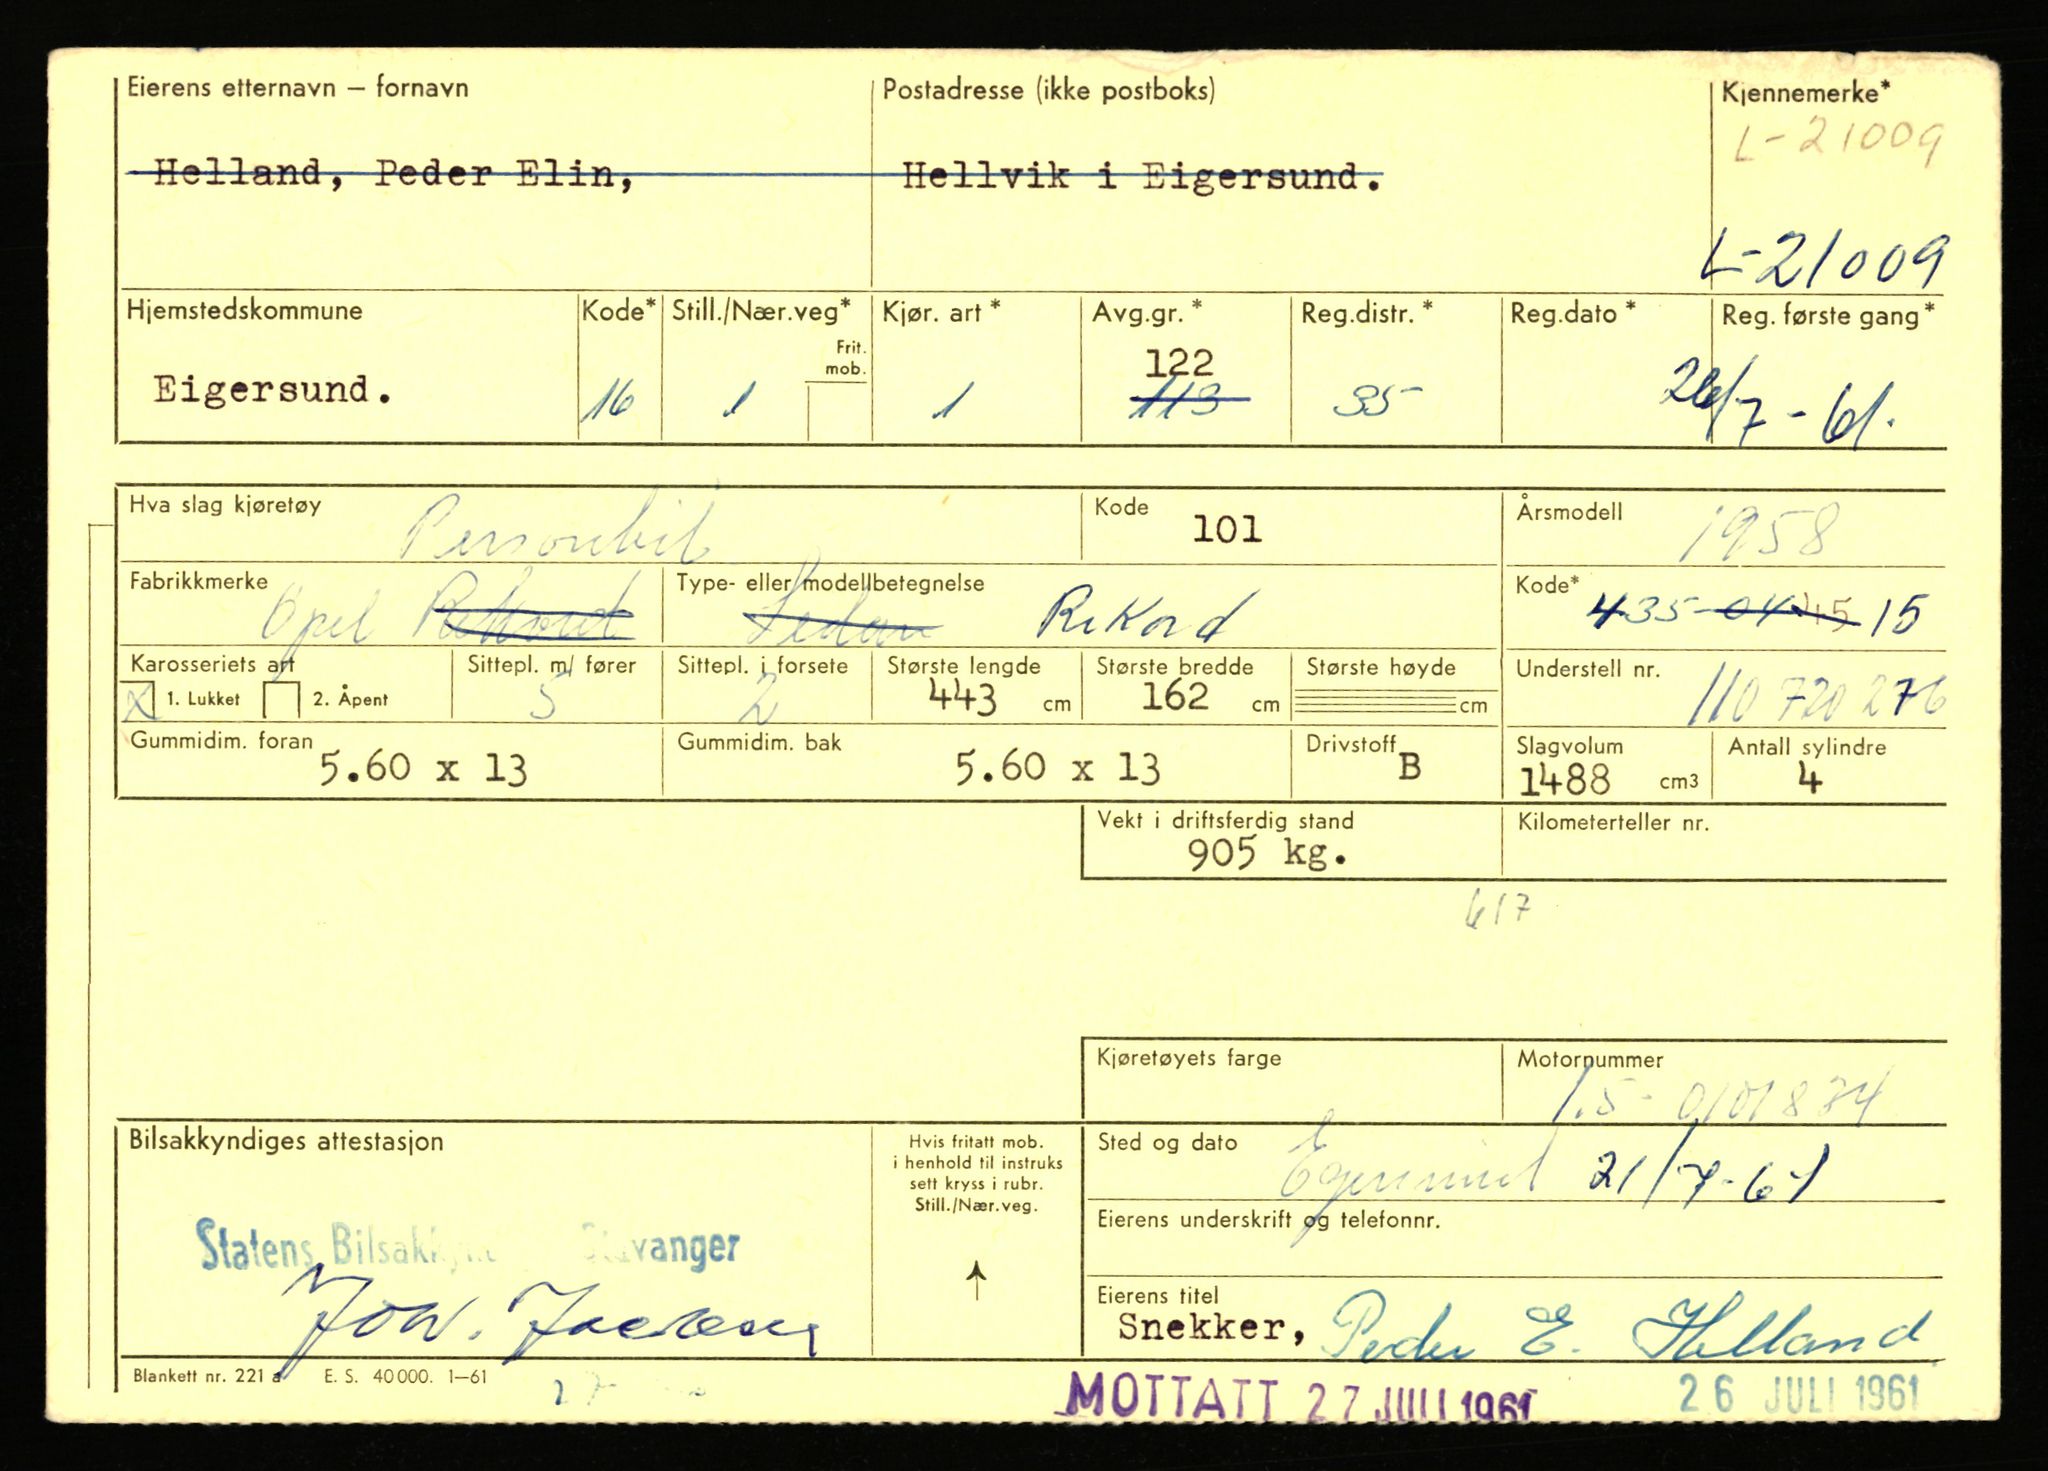 Eierens etternavn — fornavn
Postadresse (ikke postboks)
Kjennemerke*
L-21009
Helland, Peder Elin,
Hellvik i Eigersund.
L-21009
Hjemstedskommune
Kode*
Still./Nær.veg*
Kjør. art *
Avg.gr. *
Reg.distr. *
Reg.dato *
Reg. første gang*
Frit. mob.
122
Eigersund.
16
1
1
113
35
26/7-61.
Hva slag kjøretøy
Personbil
Kode
101
Årsmodell
1958
Fabrikkmerke
Opel Rekord
Type- eller modellbetegnelse
Sedan Rekord
Kode*
435-04 45 15
Karosseriets art
Sittepl. m/ fører
Sittepl. i forsete
Største lengde
Største bredde
Største høyde
Understell nr.
x 1. Lukket
2. Åpent
5
2
443 cm
162 cm
cm
110 720 276
Gummidim. foran
5.60 x 13
Gummidim. bak
5.60 x 13
Drivstoff
B
Slagvolum
1488 cm3
Antall sylindre
4
Vekt i driftsferdig stand
905 kg.
Kilometerteller nr.
617
Kjøretøyets farge
Motornummer
1.5-0101834
Bilsakkyndiges attestasjon
Hvis fritatt mob.
i henhold til instruks
sett kryss i rubr.
Still./Nær.veg.
Sted og dato
Egersund 21/7-61
Eierens underskrift og telefonnr.
Statens Bilsakkyn Stavanger
Eierens titel
Snekker, Peder E. Helland
Blankett nr. 221 a E. S. 40 000. 1—61
27
MOTTATT 27 JULI 1961
26 JULI 1961